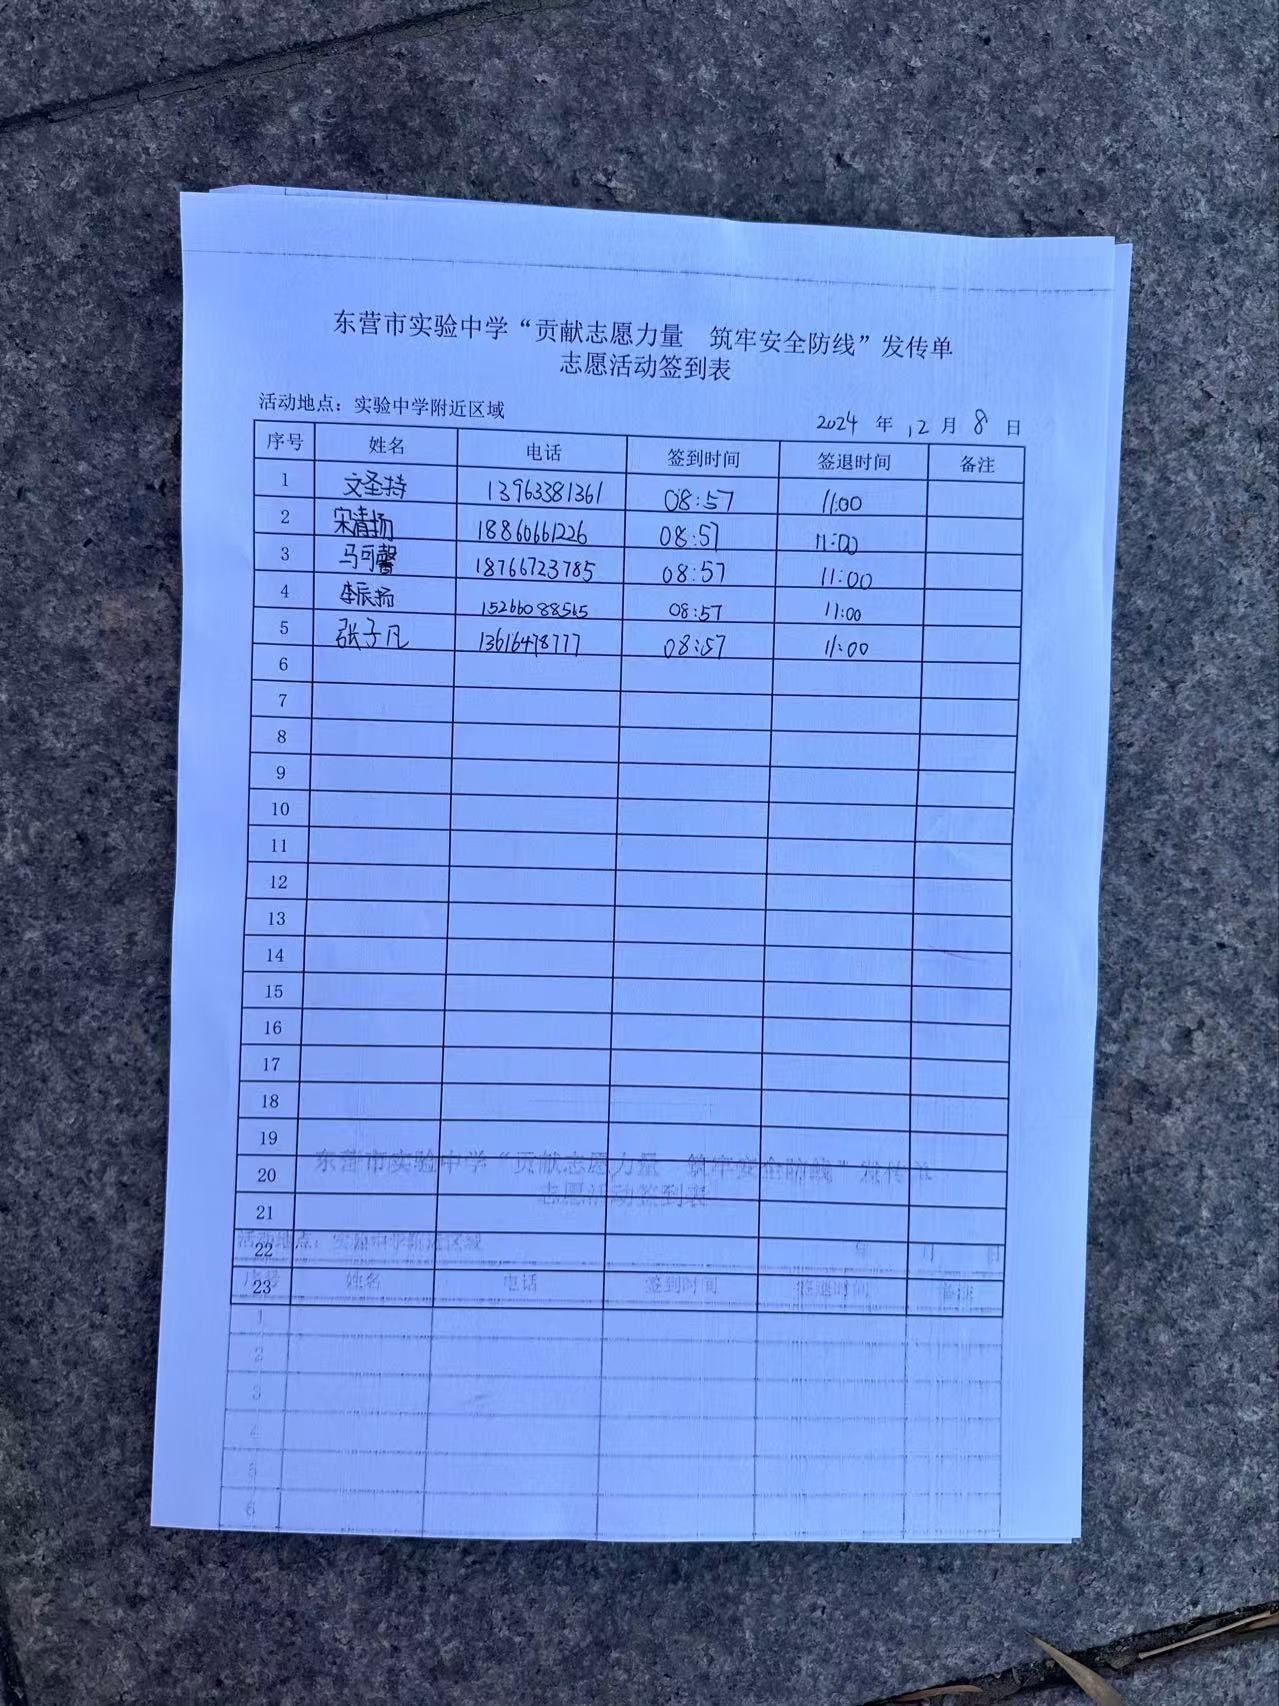 东营市实验中学“贡献志愿力量　筑牢安全防线”发传单
志愿活动签到表
活动地点：实验中学附近区域 2024 年 12 月 8 日
序号 姓名 电话 签到时间 签退时间 备注
1 文圣持 13963381361 08:57 11:00
2 宋清扬 18860661226 08:57 11:00
3 马可馨 18766723785 08:57 11:00
4 李辰扬 15266088565 08:57 11:00
5 张子凡 13616478777 08:57 11:00
6
7
8
9
10
11
12
13
14
15
16
17
18
19
东营市实验中学“贡献志愿力量　筑牢安全防线”发传单
20
志愿活动签到表
21
活动地点：实验中学附近区域 年 月 日
22
序号 姓名 电话 签到时间 签退时间 备注
23
1
2
3
4
5
6